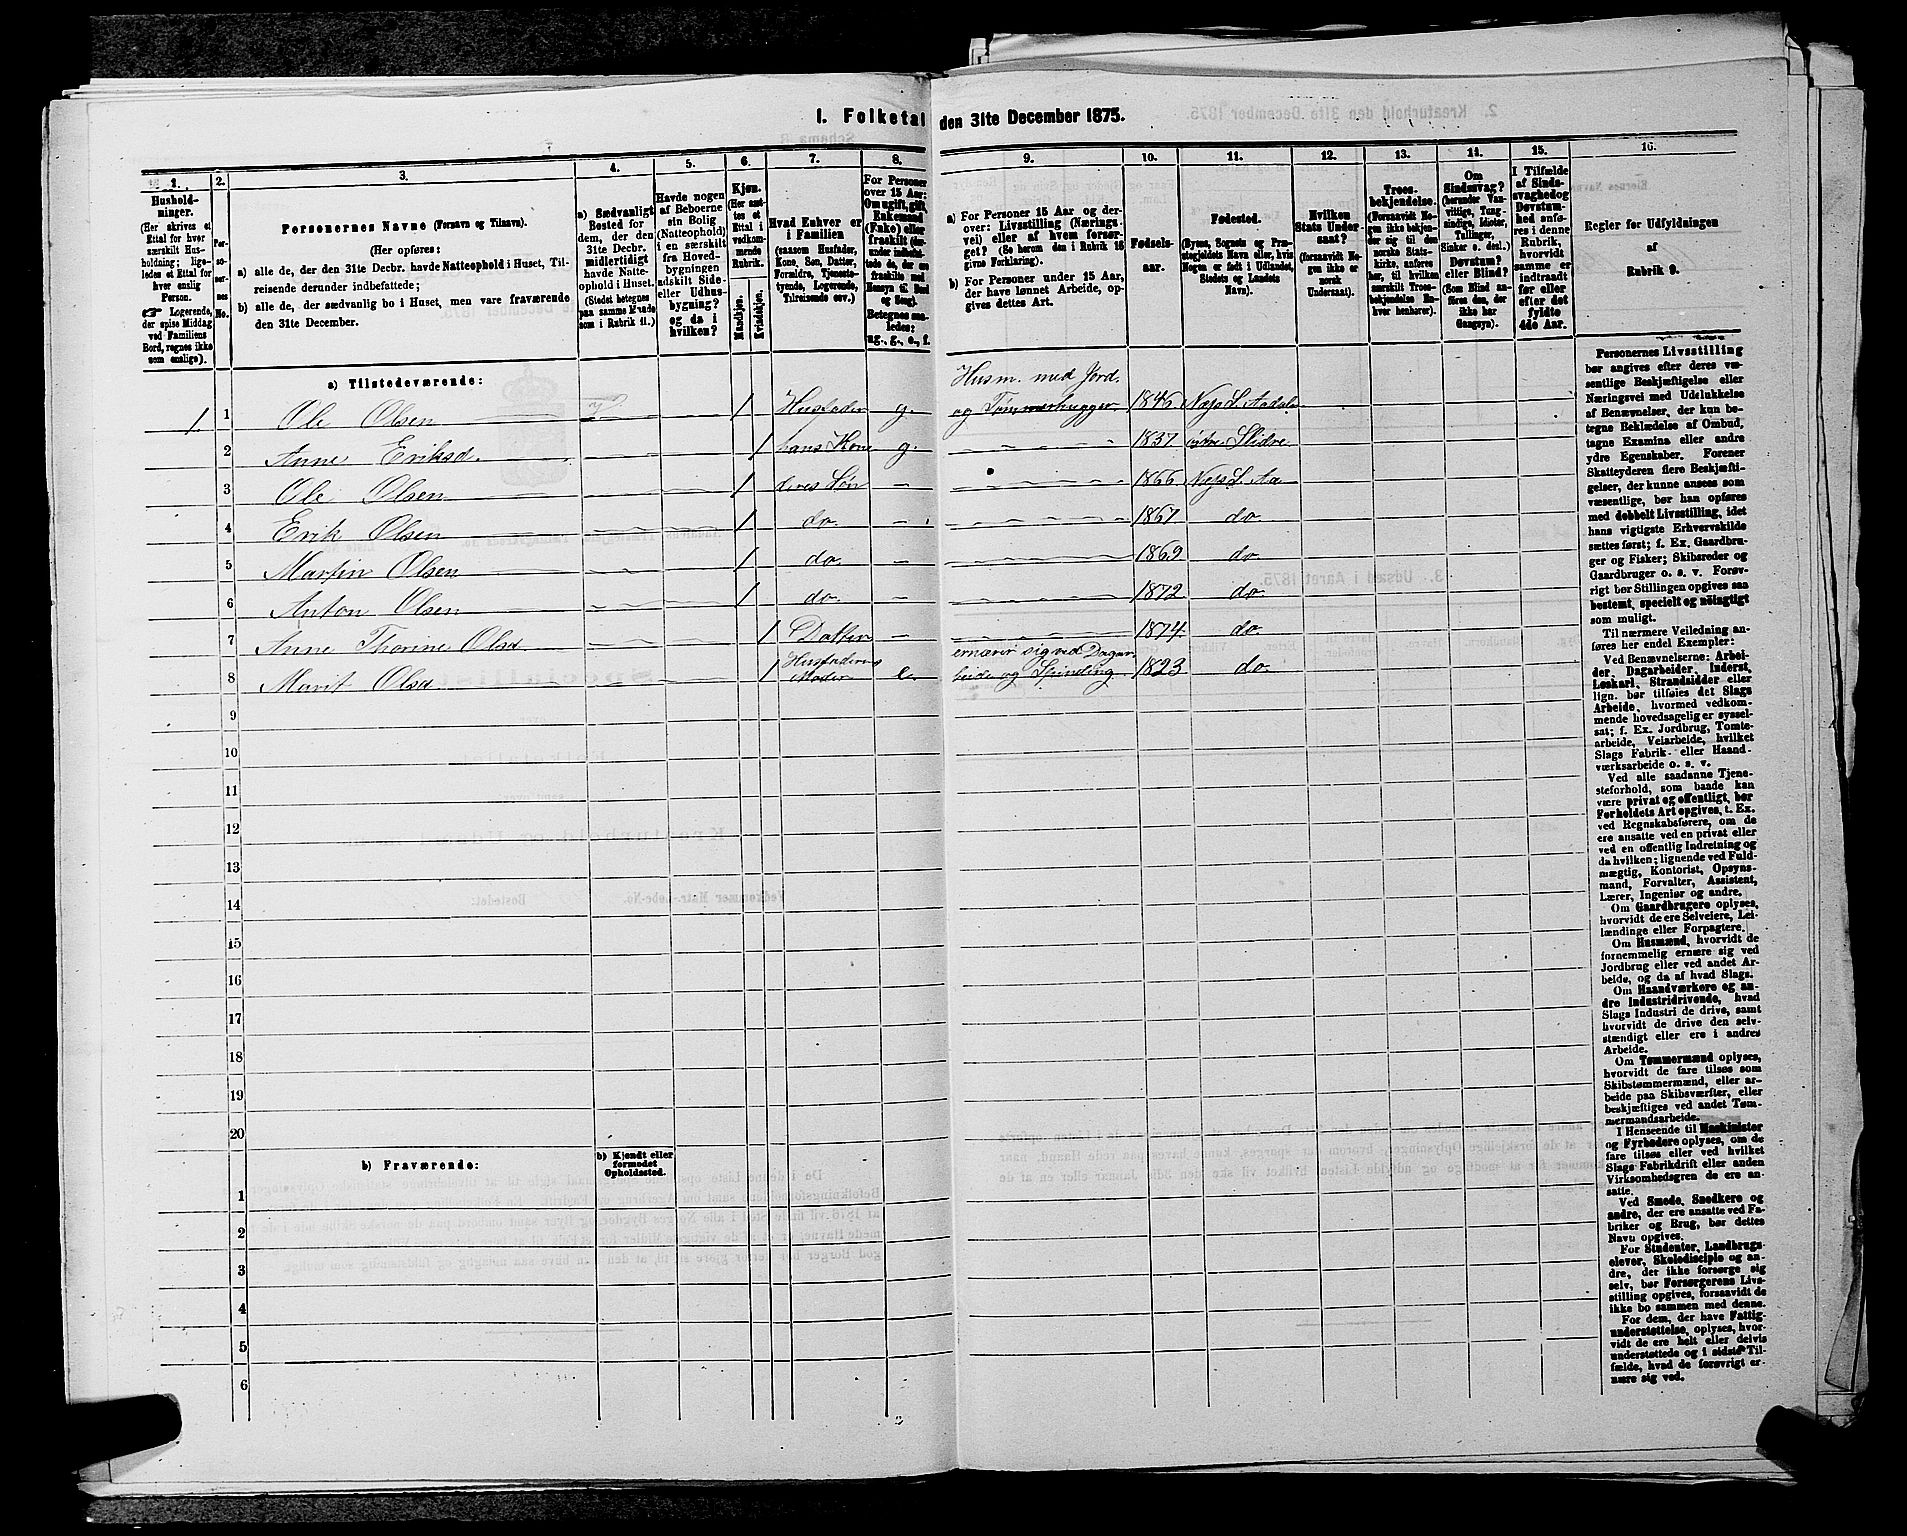 I. Folketal den 31te December 1875.
1. 2. 3. 4. 5. 6. 7. 8. 9. 10. 11. 12. 13. 14. 15. 16.
Husholdninger.
(Her skrives et
Ettal for hver
særskilt Husholdning;
ligeledes et Ettal for
hver enslig
Person.
Logerende,
der spise Middag
ved Familiens
Bord, regnes ikke
som enslige).
Personernes No.
Personernes Navne (Fornavn og Tilnavn).
(Her opføres:
a) alle de, der den 31te Decbr. havde Natteophold i Huset, Tilreisende
derunder indbefattede;
b) alle de, der sædvanlig bo i Huset, men vare fraværende
den 31te December.
a) Sædvanligt
Bosted for
dem, der den
31te Decbr.
midlertidigt
havde Natteophold
i Huset.
(Stedet betegnes
paa samme Maade
som i Rubrik 11.)
Havde nogen
af Beboerne
sin Bolig
(Natteophold)
i en særskilt
fra Hovedbygningen
adskilt Side-
eller Udhusbygning?
og da i
hvilken?
Kjøn.
(Her sættes
et
Ettal i
vedkommende
Rubrik.
Mandkjøn.
Kvindekjøn.
Hvad Enhver er
i Familien
(saasom Husfader,
Kone, Søn, Datter,
Forældre, Tjenestetyende,
Logerende,
Tilreisende osv.)
For Personer
over 15 Aar:
Om ugift, gift,
Enkemand
(Enke) eller
fraskilt
Betegnes saaledes:
ug., g., e., f.
a) For Personer 15 Aar og derover:
Livsstilling (Næringsvei)
eller af hvem forsørget?
(Se herom den i Rubrik 16
givne Forklaring).
b) For Personer under 15 Aar,
der have lønnet Arbeide, opgives
dettes Art.
Fødselsaar.
Fødested.
(Byens, Sognets og Præstegjeldets
Navn eller, hvis
Nogen er født i Udlandet,
Stedets og Landets
Navn).
Hvilken
Stats Undersaat?
(forsaavidt Nogen
ikke er
norsk
Undersaat).
Troesbekjendelse.
(Forsaavidt Nogen
ikke bekjender
sig til den
norske Statskirke,
anføres
her, til hvilken
særskilt Troesbekjendelse
Enhver
henhører).
Om
Sindssvag?
(herunder Vanvittige,
Tungsindige,
Idioter,
Tullinger,
Sinker o. desl.)
Døvstum?
eller Blind?
(Som Blind anføres
den, der
ikke har
Gangsyn).
I Tilfælde
af Sindssvaghed
og
Døvstumhed
anføres
i denne
Rubrik,
hvorvidt
samme er
indtraadt
før eller
efter det
fyldte
4de Aar.
Regler for Udfyldningen
af
Rubrik 9.
a) Tilstedeværende:
1. 1 Ole Olsen 1 Husfader g. Husm. med Jord. og Tømmerhugger 1846 Næs S. Aadalen
2 Anne Eriksd. 1 hans Kone g. 1837 østre Slidre
3 Ole Olsen 1 deres Søn 1866 Næs S. Aa
4 Erik Olsen 1 do 1867 do
5 Martin Olsen 1 do. 1869 do
6 Anton Olsen 1 do. 1872 do
7 Anne Thorine Olsd 1 Datter 1874 do.
8 Marit Olsd 1 Husfaderens Moder e. ernærer sig ved Dagarbeide og Spinding 1823 do.
9
10
11
12
13
14
15
16
17
18
19
20
b) Fraværende:
b) Kjendt eller
formodet
Opholdssted.
1
2
3
4
5
6
Personernes Livsstilling
bør angives efter deres væsentlige
Beskjæftigelse eller
Næringsvei med Udelukkelse
af Benævnelser, der kun betegne
Beklædelse af Ombud,
tagne Examina eller andre
ydre Egenskaber. Forener
Skatteyderen flere Beskjæftigelser,
der kunne ansees som
væsentlige, bør han opføres
med dobbelt Livsstilling, idet
hans vigtigste Erhvervskilde
sættes først; f. Ex. Gaardbruger
og Fisker; Skibsreder og
Gaardbruger o. s. v. Forøvrigt
bør Stillingen opgives saa
bestemt, specielt og nöiagtigt
som muligt.
Til nærmere Veiledning anføres
her endel Exempler:
Ved Benævnelserne: Arbeider,
Dagarbeider, Inderst,
Løskarl, Strandsidder eller
lign. bør tilføies det Slags
Arbeide, hvormed vedkommende
hovedsagelig er sysselsat;
f. Ex. Jordbrug, Tomtearbeide,
Veiarbeide, hvilket
Slags Fabrik- eller Haandværksarbeide
o. s. v.
Ved alle saadanne Tjenesteforhold,
som baade kan
være privat og offentligt, bør
Forholdets Art opgives, t. Ex.
ved Regnskabsførere, om de
ere ansatte ved en privat eller
ved en offentlig Indretning og
da hvilken; lignende ved Fuldmægtig,
Kontorist, Opsynsmand,
Forvalter, Assistent,
Lærer, Ingeniør og andre.
Om Gaardbrugere oplyses,
hvorvidt de ere Selveiere, Leilændinge
eller Forpagtere.
Om Husmænd, hvorvidt de
fornemmelig ernære sig ved
Jordbrug eller ved andet Arbeide,
og da af hvad Slags.
Om Haandværkere og andre
Industridrivende, hvad
Slags Industri de drive, samt
hvorvidt de drive den selvstændigt
eller ere i andres
Arbeide.
Om Tømmermænd oplyses,
hvorvidt de fare tilsøs som
Skibstømmermænd, eller arbeide
paa Skibsværfter, eller
beskjæftiges ved andet Tømmermandsarbeide.
I Henseende til Maskinister
og Fyrbødere oplyses, om de
fare tilsøs eller ved hvilket
Slags Fabrikdrift eller anden
Virksomhedsgren de ere ansatte.
Ved Smede, Snedkere og
andre, der ere ansatte ved Fabriker
og Brug, bør dettes
Navn opgives.
For Studenter, Landbrugselever,
Skoledisciple og andre,
der ikke forsørge sig
selv, bør Forsørgerens Livsstilling
opgives, forsaavidt de
ikke bo sammen med denne.
For dem, der have Fattigunderstøttelse,
oplyses, hvorvidt
de ere helt eller delvis
understøttede og i sidste Tilfælde,
hvad de forøvrigt ernære
sig ved.